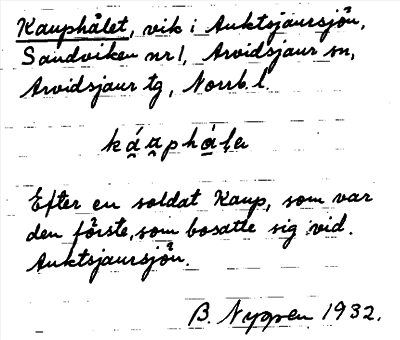 Kauphålet, vik i Auktsjaursjön,
Sandviken nr 1, Arvidsjaur sn,
Arvidsjaur tg, Norrb. l.
káu̯phà̱lɐ
Efter en soldat Kaup, som var
den förste, som bosatte sig vid
Auktsjaursjön.
B. Nygren 1932.